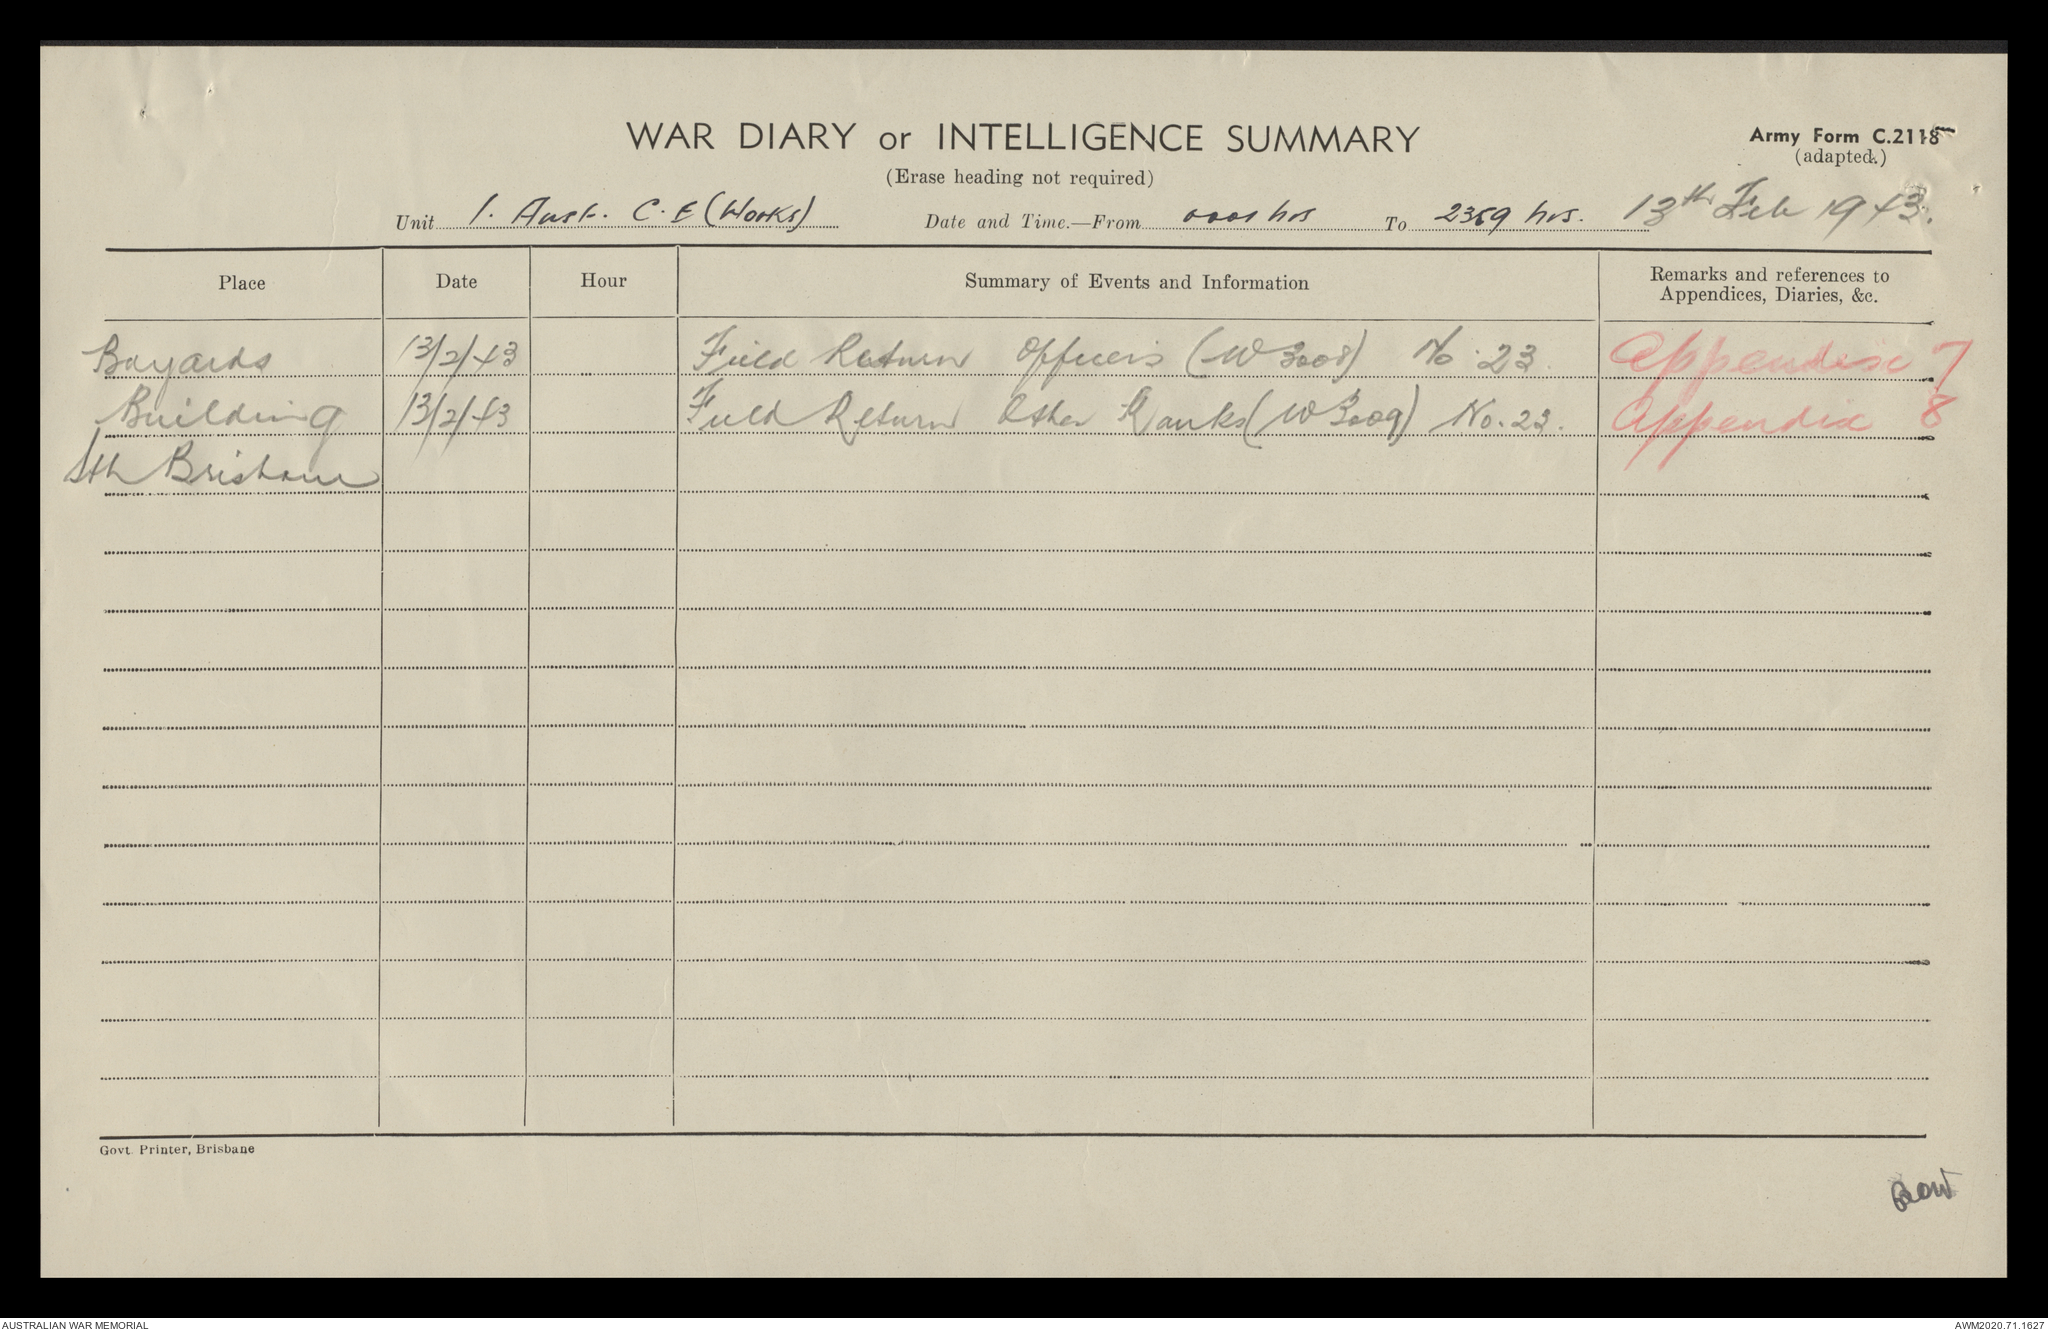 WAR DIARY or INTELLIGENCE SUMMARY
Army Form C.2118
(adapted.)
(Erase heading not required)
Unit 1. Aust. C.E (Works) Date and Time.—From 0001 hrs To 2359 hrs. 13th Feb 1943.
Place Date Hour Summary of Events and Information Remarks and references to
Appendices, Diaries, &c.
Bayards 13/2/43 Field Return Officers (W3008) No. 23. Appendix 7
Building 13/2/43 Field Return Other Ranks (W3009) No. 23. Appendix 8
Sth Brisbane
Govt. Printer, Brisbane
AUSTRALIAN WAR MEMORIAL
AWM2020.71.1627